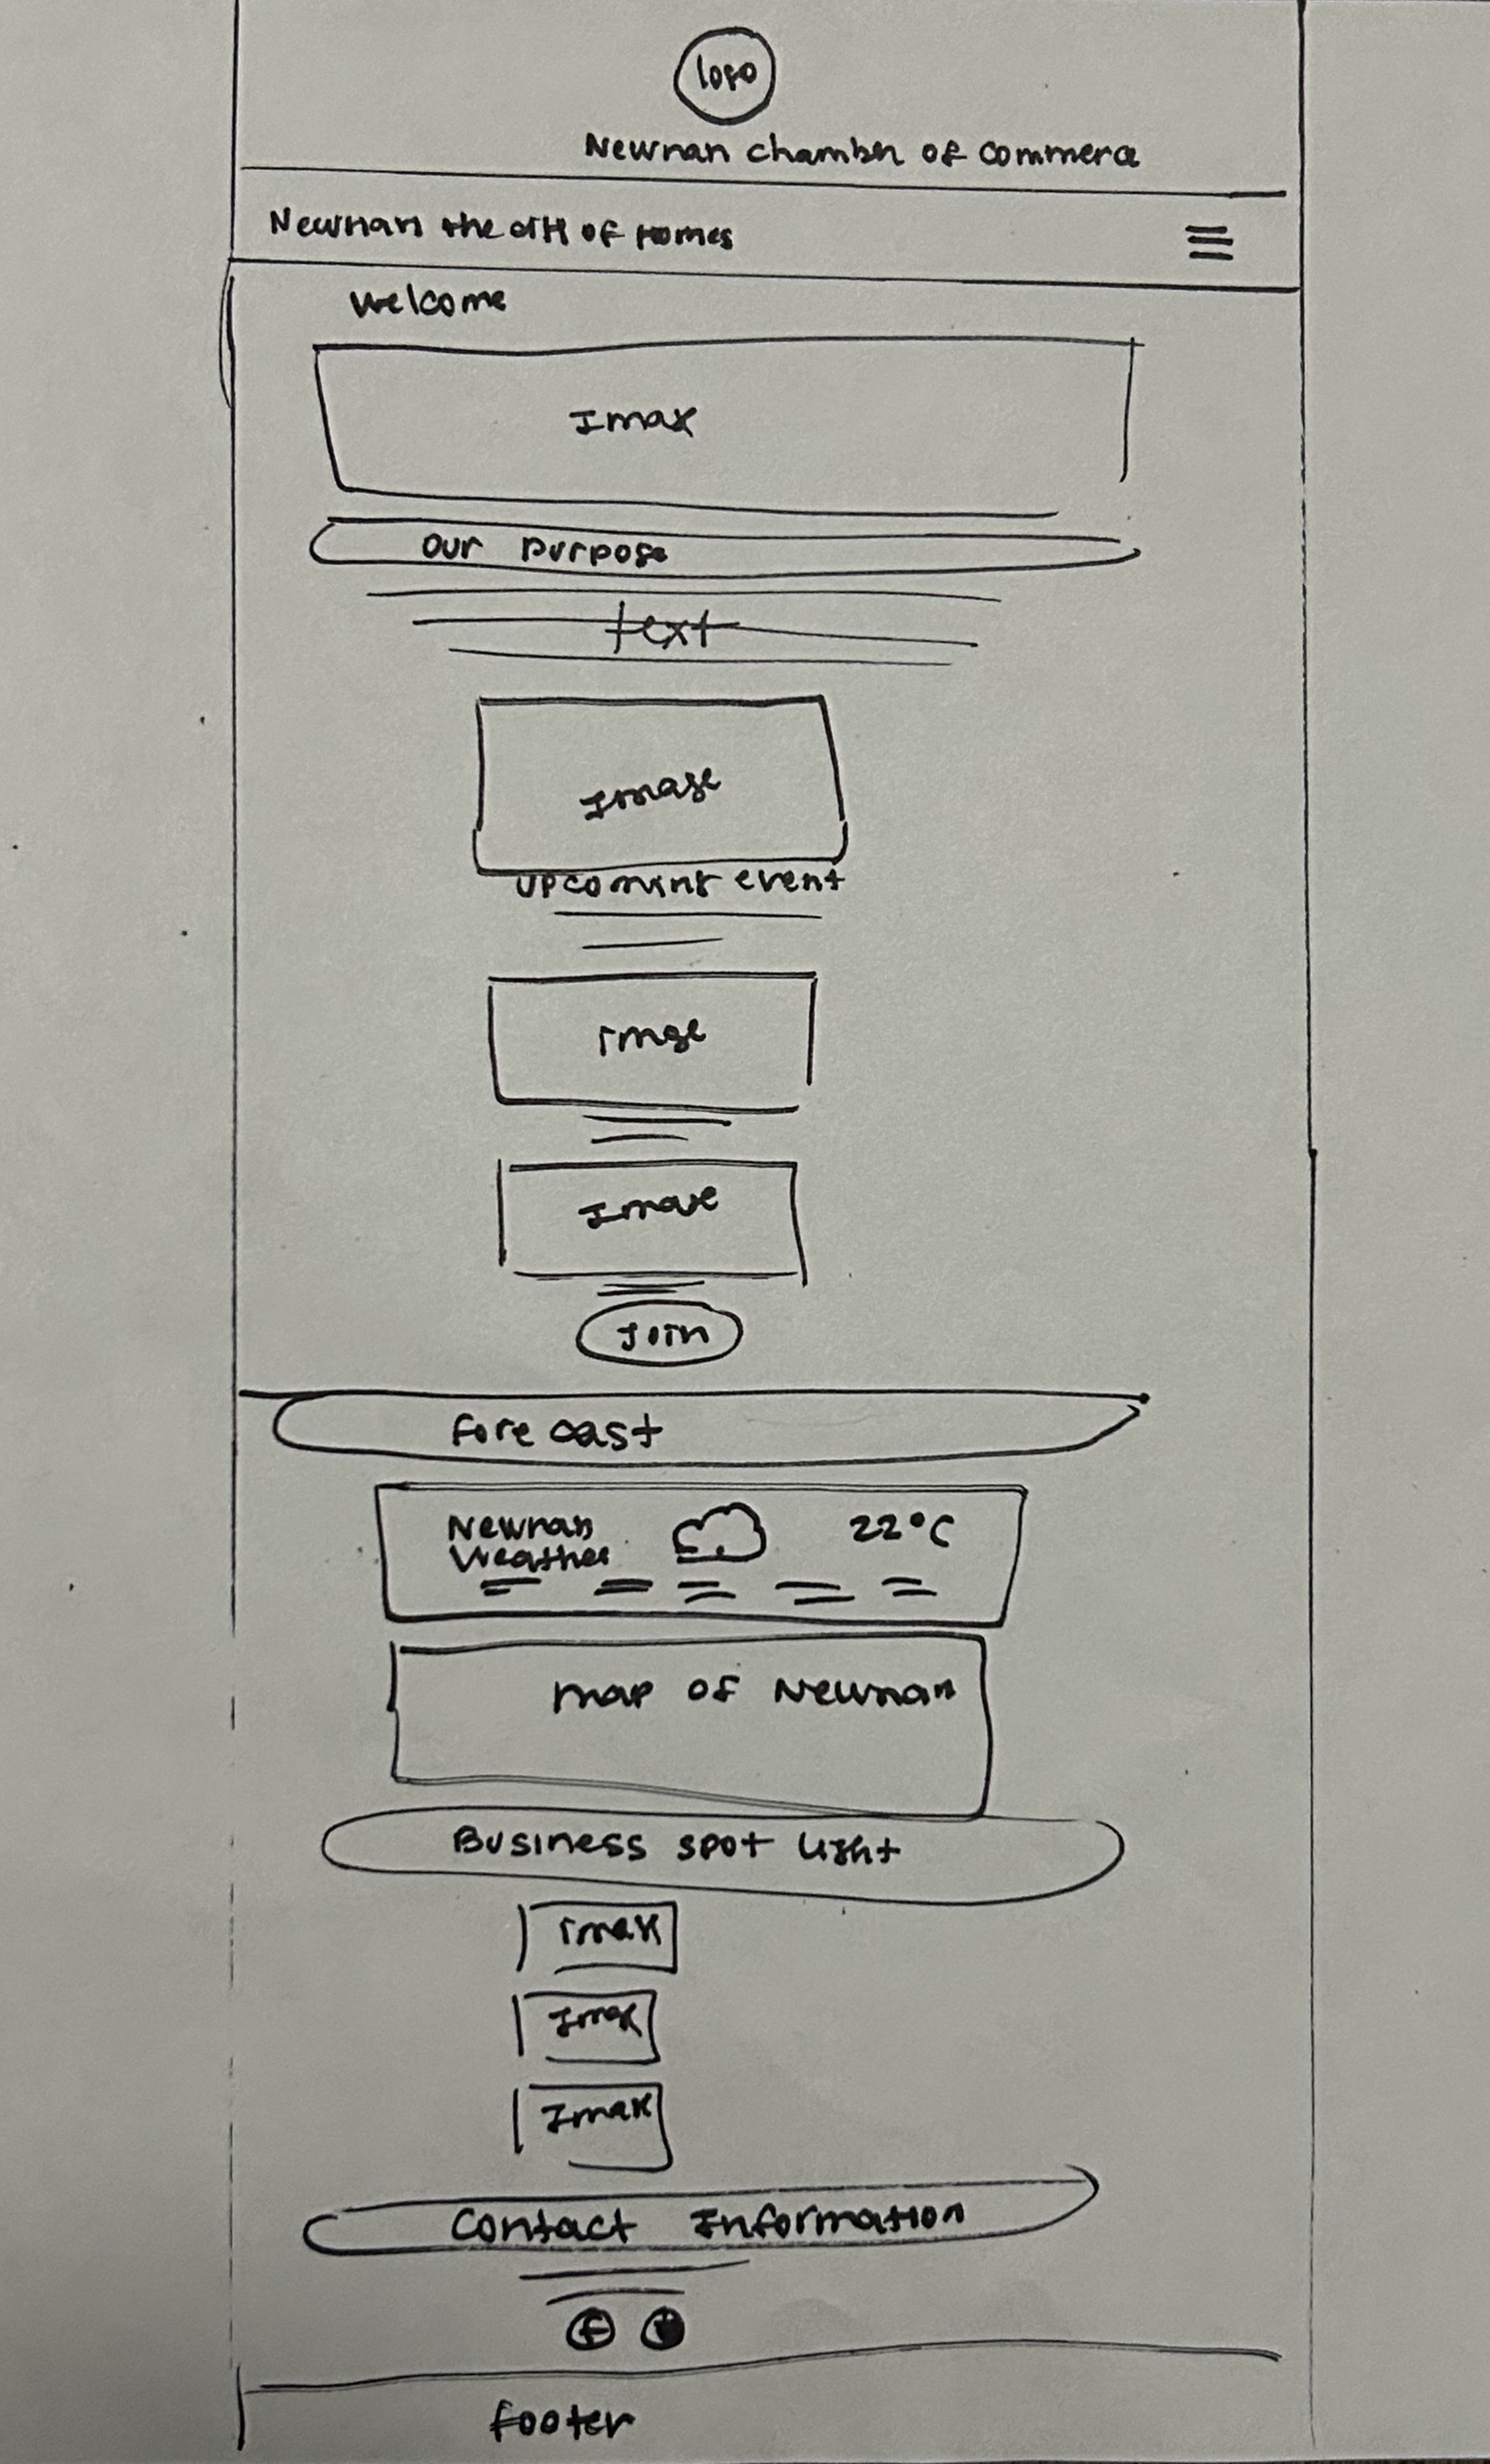 logo
Newnan chamber of commerce
Newnan the city of Homes
welcome
Image
our purpose
text
Image
upcoming event
image
Image
Join
fore cast
Newnan 22°C
Weather
map of Newnan
Business spot light
image
Image
Image
Contact Information
f
footer